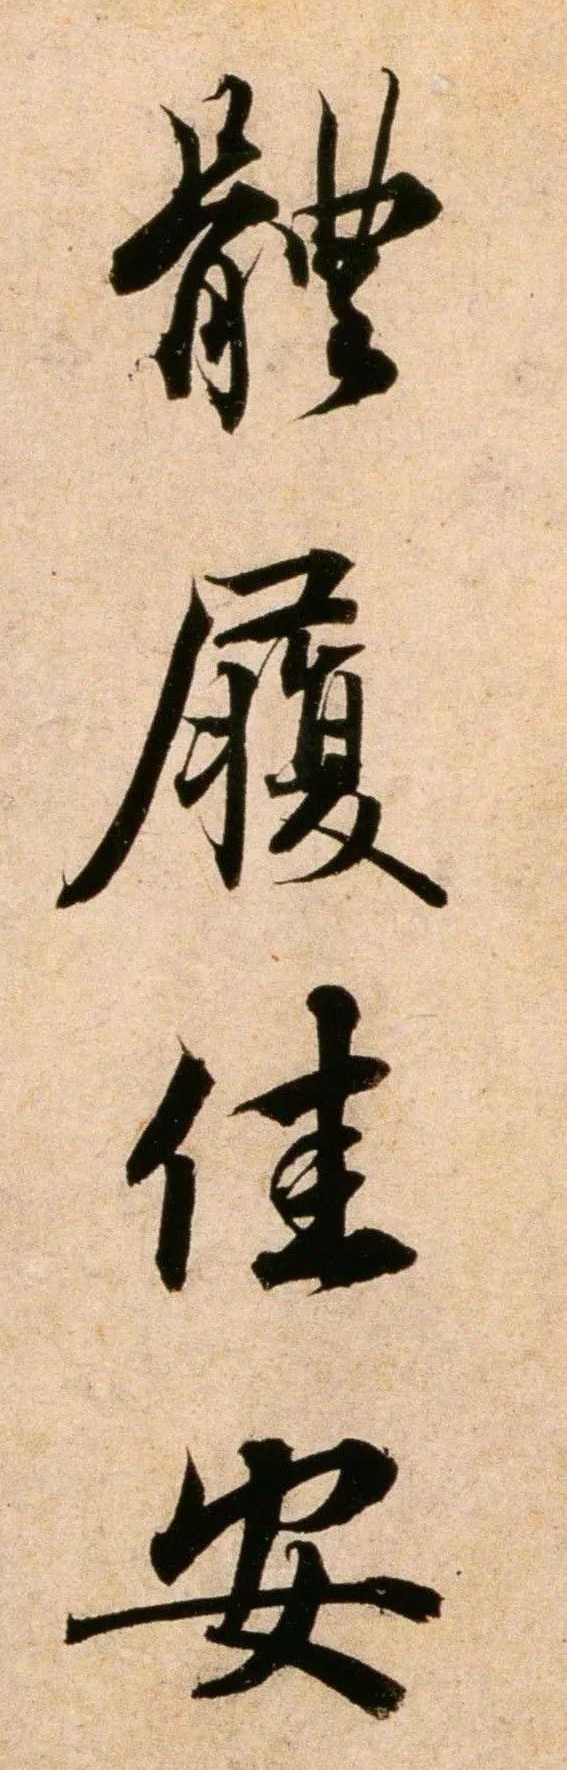 體履佳安